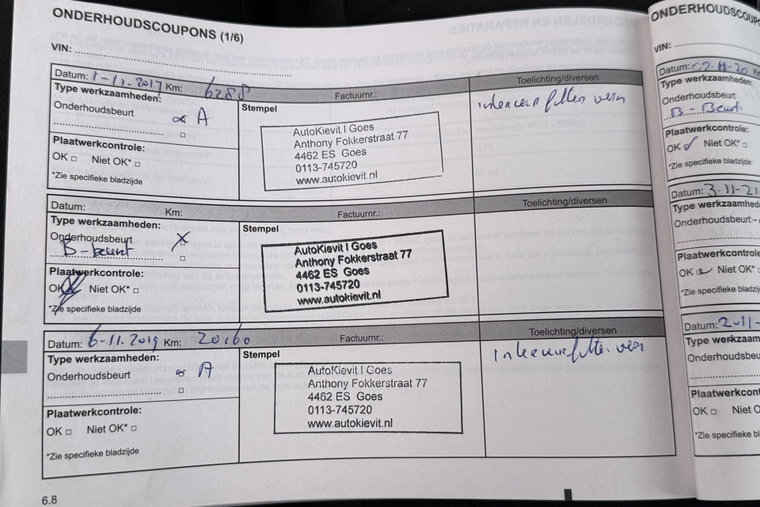 ONDERHOUDSCOUPONS (1/6)
VIN:
Datum: 1-11-2017 Km: 6288 Factuurnr.: Toelichting/diversen
Type werkzaamheden:
Onderhoudsbeurt A
Stempel
interieurfilter verv
Plaatwerkcontrole:
OK Niet OK*
*Zie specifieke bladzijde
AutoKievit I Goes
Anthony Fokkerstraat 77
4462 ES Goes
0113-745720
www.autokievit.nl
Datum: Km: Factuurnr.: Toelichting/diversen
Type werkzaamheden:
Onderhoudsbeurt X
B-beurt
Stempel
Plaatwerkcontrole:
OK Niet OK*
*Zie specifieke bladzijde
AutoKievit I Goes
Anthony Fokkerstraat 77
4462 ES Goes
0113-745720
www.autokievit.nl
Datum: 6-11-2019 Km: 20160 Factuurnr.: Toelichting/diversen
Type werkzaamheden:
Onderhoudsbeurt A
Stempel
Interieurfilter verv
Plaatwerkcontrole:
OK Niet OK*
*Zie specifieke bladzijde
AutoKievit I Goes
Anthony Fokkerstraat 77
4462 ES Goes
0113-745720
www.autokievit.nl
6.8
ONDERHOUDSCOUP
VIN:
Datum: 02-11-20 Km
Type werkzaamheden:
Onderhoudsbeurt
B-Beurt
Plaatwerkcontrole:
OK Niet OK*
*Zie specifieke bladzijde
Datum: 3-11-21
Type werkzaamhed
Onderhoudsbeurt
Plaatwerkcontrole:
OK Niet OK*
*Zie specifieke bl
Datum: 2-11-
Type werkzaam
Onderhoudsbeu
Plaatwerkcont
OK Niet O
*Zie specifieke b